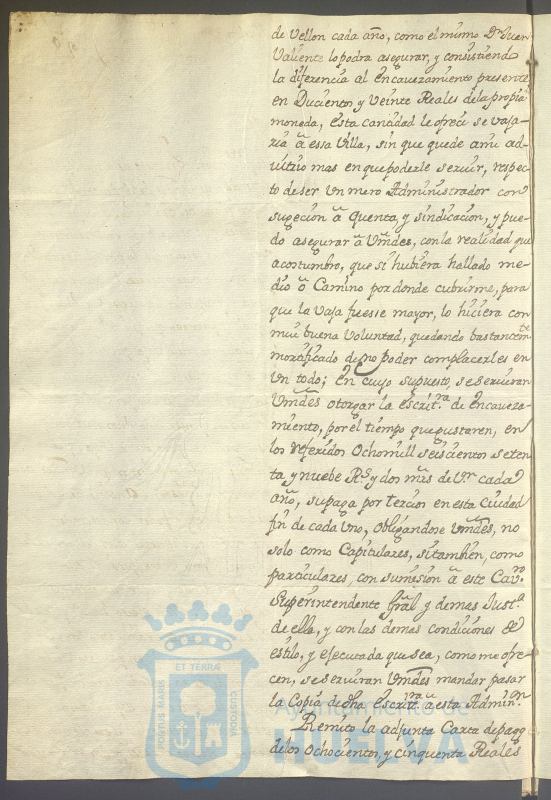 de Vellon cada año, como el mismo Dn. Juan
Valiente lo podra asegurar, y consistiendo
la diferencia al encavezamiento presente
en Ducientos y Veinte Reales de la propia
moneda, esta cantidad le ofreci se vaja-
ria â essa Villa, sin que quede a mi ad-
vitrio mas en que poderle servir, respec-
to de ser Un mero Administrador con
sugecion â Quenta, y sindicacion, y pue-
do asegurar â Vmdes, con la realidad que
acostumbro, que si hubiera hallado me-
dio ô Camino por donde cubrirme, para
que la vaja fuesse mayor, lo hiciera con
mui buena Voluntad, quedando bastantemte
mortificado de no poder complacerles en
Un todo; En cuyo supuesto, se serviran
Vmdes otorgar la escritra. de Encaveza-
miento, por el tiempo que gustaren, en
los referidos Ocho mill seiscientos seten-
ta y nuebe Rs. y dos mrs de Vn cada
año, su paga por tercios en esta Ciudad
fin de cada Uno, obligandose Vmdes, no
solo como Capitulares, si tambien, como
particulares, con sumision â este Cavro.
Superintendente Gral y demas Justa.
de ella, y con las demas condiciones de
estilo, y efecutada que sea, como me ofre-
cen, se serviran Vmdes mandar pasar
la Copia de dha escritra. a esta Adminon.
Remito la adjunta Carta de pago
de los Ochocientos, y cinquenta Reales
PORTUS MARIS ET TERRÆ CUSTODIA
Ayuntamiento de
HUELVA